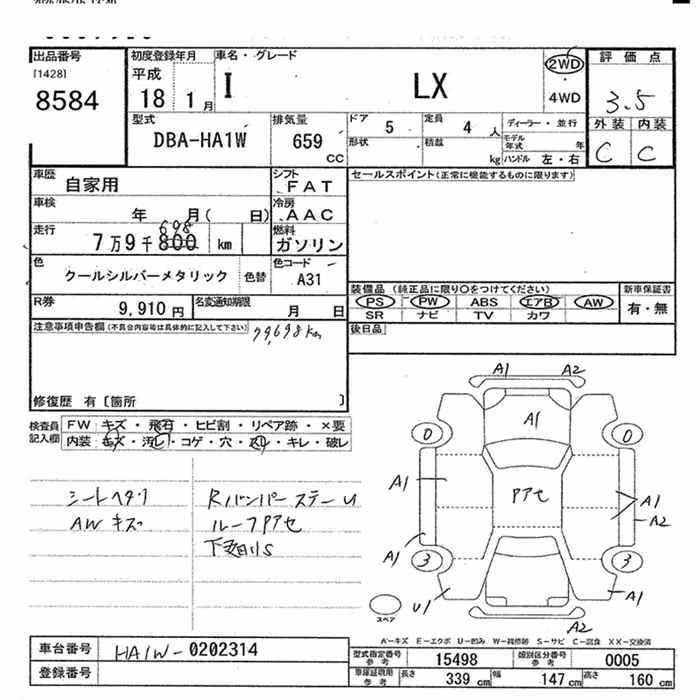 出品番号
[1428]
8584
初度登録年月
平成
18 1月
車名・グレード
I LX
2WD
4WD
評価点
3.5
外装 内装
C C
型式
DBA-HA1W
排気量
659
CC
ドア 5
定員 4 人
形状
積載 kg
ディーラー・並行
モデル年式 年
ハンドル 左・右
車歴
自家用
シフト
FAT
セールスポイント(正常に機能するものに限ります)
車検
年 月( 日)
冷房
AAC
走行
698
7万9千800 km
燃料
ガソリン
色
クールシルバーメタリック
色替
色コード
A31
装備品 (純正品に限り○をつけてください)
PS PW ABS エアB AW
SR ナビ TV カワ
新車保証書
有・無
R券
9,910 円
名変通知期限
月 日
後日品
注意事項申告欄(不具合内容等は具体的に記入して下さい)
79,698km
修復歴 有〔箇所 〕
検査員
記入欄
FW キズ・飛石・ヒビ割・リペア跡・×要
内装 キズ・汚レ・コゲ・穴・スレ・キレ・破レ
シートヘタリ
AW キズ
Rバンパーステー U
ルーフアセ
下廻りS
A1 A2
A1
0 0
A1
アアセ
A1
A2
A1
3 3
U1
A1
スペア
A2
A-キズ E-エクボ U-凹み W-補修跡 S-サビ C-腐食 XX-交換済
車台番号
HA1W-0202314
登録番号
型式指定番号
参考
15498
類別区分番号
参考
0005
車庫証明用
参考
長さ 339 cm
幅 147 cm
高さ 160 cm